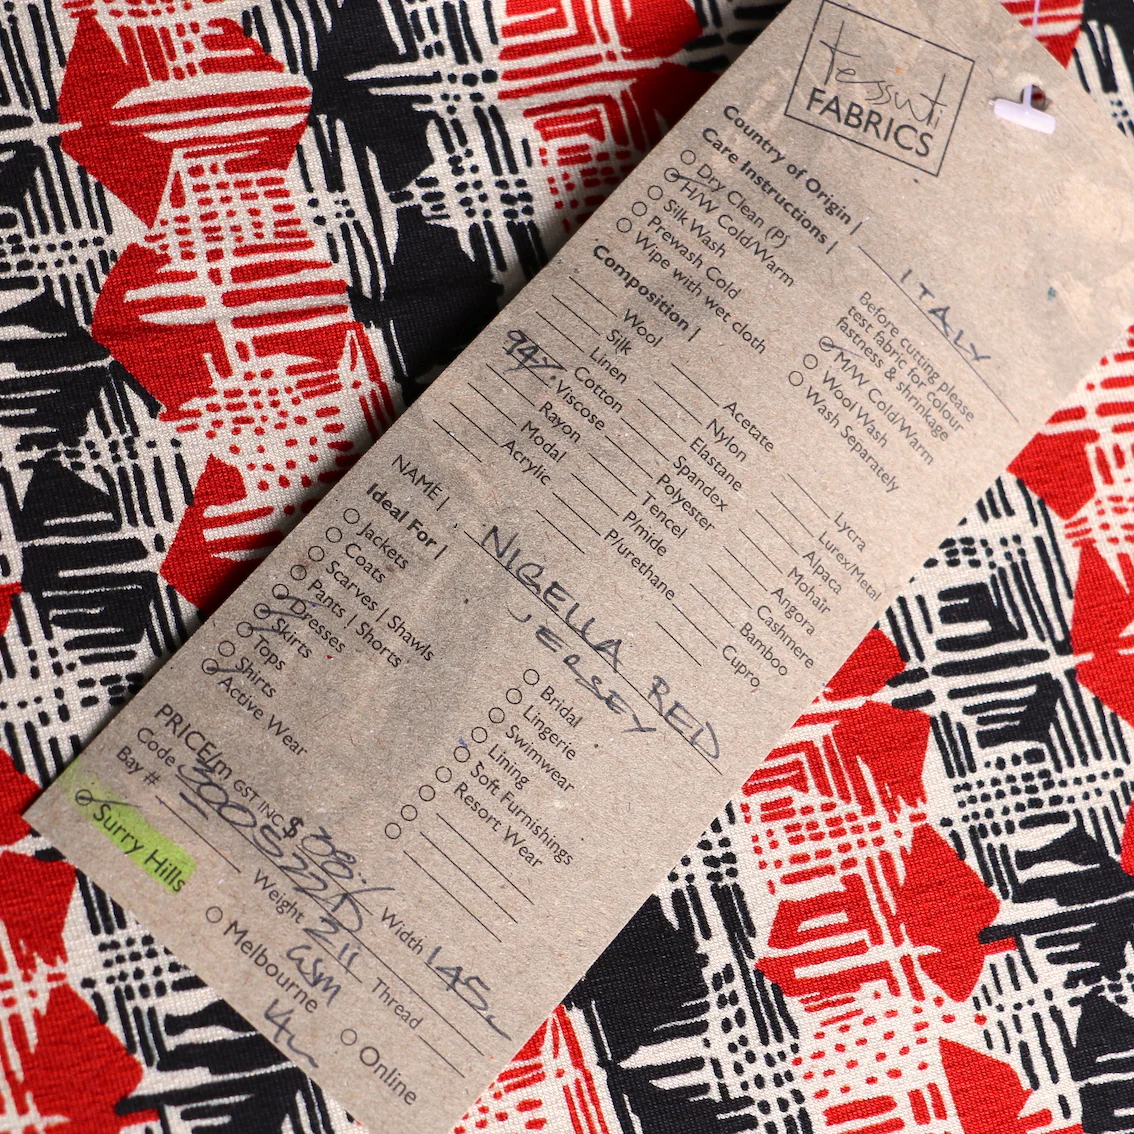 tessuti
FABRICS
Country of Origin | ITALY
Care Instructions |
Dry Clean (P)
H/W Cold/Warm
Silk Wash
Prewash Cold
Wipe with wet cloth
Before cutting please
test fabric for colour
fastness & shrinkage
M/W Cold/Warm
Wool Wash
Wash Separately
Composition |
Wool
Silk
Linen
Cotton
94% Viscose
Rayon
Modal
Acrylic
Acetate
Nylon
Elastane
Spandex
Polyester
Tencel
P/mide
P/urethane
Lycra
Lurex/Metal
Alpaca
Mohair
Angora
Cashmere
Bamboo
Cupro
NAME | NIGELLA RED
JERSEY
Ideal For |
Jackets
Coats
Scarves | Shawls
Pants | Shorts
Dresses
Skirts
Tops
Shirts
Active Wear
Bridal
Lingerie
Swimwear
Lining
Soft Furnishings
Resort Wear
PRICE/m GST INC $
Width 145
Code
Weight 211
GSM
Thread
Bay #
Surry Hills
Melbourne
Online